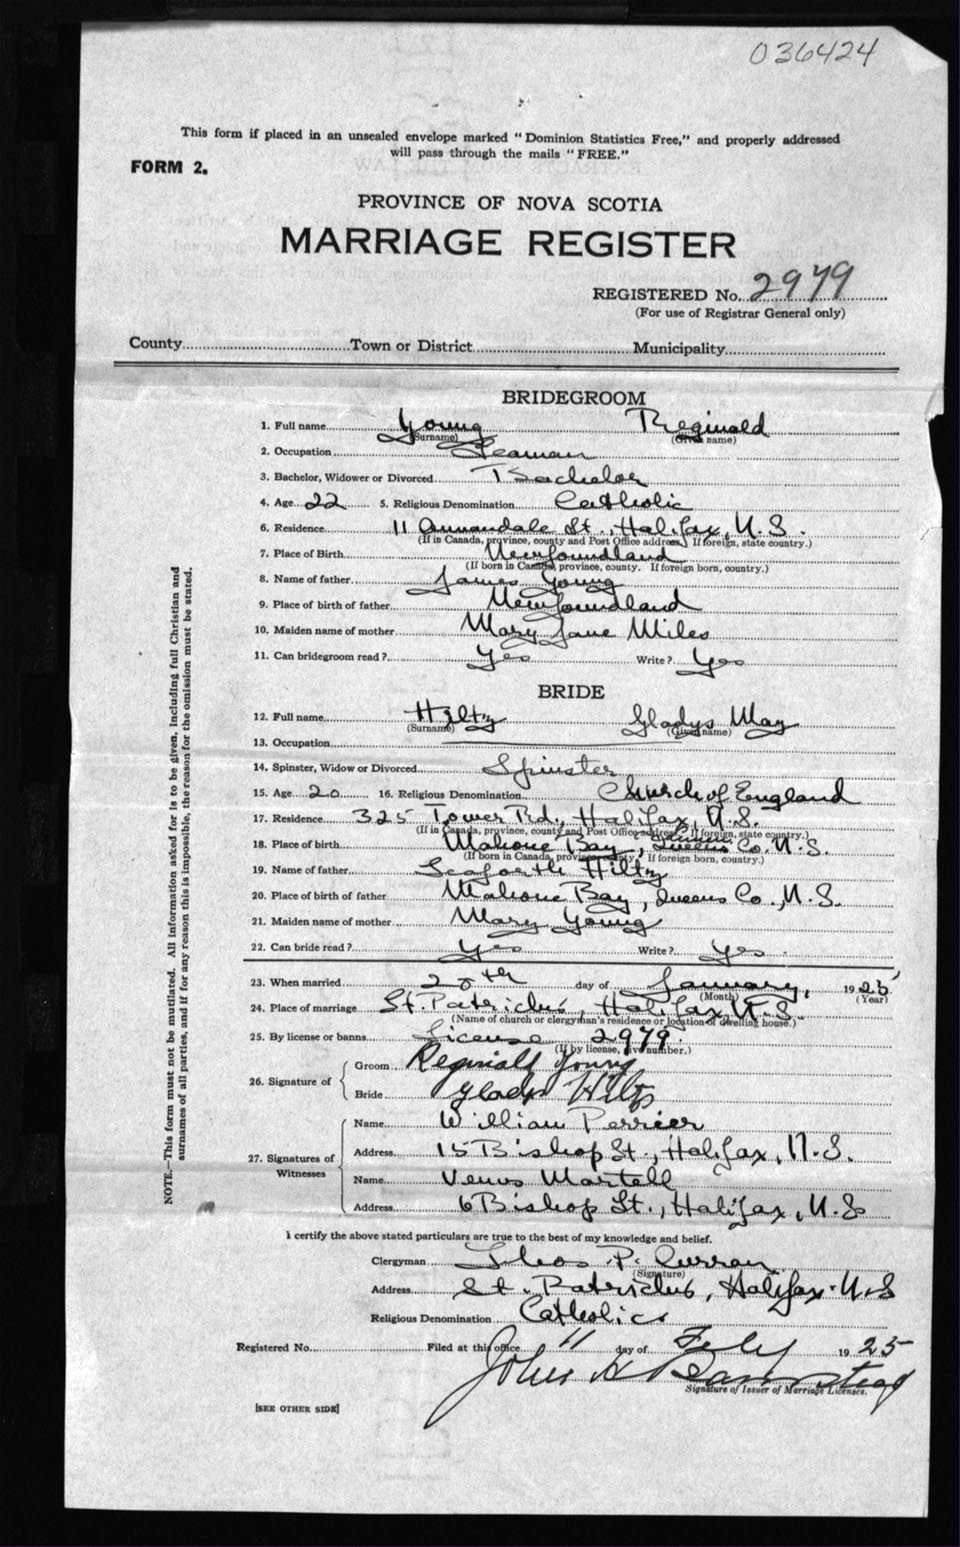 036424
This form if placed in an unsealed envelope marked "Dominion Statistics Free," and properly addressed
will pass through the mails "FREE."
FORM 2.
PROVINCE OF NOVA SCOTIA
MARRIAGE REGISTER
REGISTERED No. 2979
(For use of Registrar General only)
County Town or District Municipality
BRIDEGROOM
1. Full name Young Reginald
(Surname) (Given name)
2. Occupation Seaman
3. Bachelor, Widower or Divorced Bachelor
4. Age 22 5. Religious Denomination Catholic
6. Residence 11 Annandale St., Halifax, N.S.
(If in Canada, province, county and Post Office address. If foreign, state country.)
7. Place of Birth Newfoundland
(If born in Canada, province, county. If foreign born, country.)
8. Name of father James Young
9. Place of birth of father Newfoundland
10. Maiden name of mother Mary Jane Miles
11. Can bridegroom read? Yes Write? Yes
BRIDE
12. Full name Hiltz Gladys May
(Surname) (Given name)
13. Occupation
14. Spinster, Widow or Divorced Spinster
15. Age 20 16. Religious Denomination Church of England
17. Residence 325 Tower Rd., Halifax, N.S.
(If in Canada, province, county and Post Office address. If foreign, state country.)
18. Place of birth Mahone Bay, Queens Co. N.S.
(If born in Canada, province, county, If foreign born, country.)
19. Name of father Seaforth Hiltz
20. Place of birth of father Mahone Bay, Queens Co., N.S.
21. Maiden name of mother Mary Young
22. Can bride read? Yes Write? Yes
23. When married 20th day of January, 1925
(Month) (Year)
24. Place of marriage St. Patrick's, Halifax N.S.
(Name of church or clergyman's residence or location of dwelling house.)
25. By license or banns License 2979.
(If by license, give number.)
26. Signature of
Groom Reginald Young
Bride Gladys Hiltz
27. Signatures of Witnesses
Name William Perrier
Address 15 Bishop St., Halifax, N.S.
Name Venus Martell
Address 6 Bishop St., Halifax, N.S
I certify the above stated particulars are true to the best of my knowledge and belief.
Clergyman Theos P. Curran
(Signature)
Address St. Patricks, Halifax. N.S
Religious Denomination Catholic
Registered No. Filed at this office 11 day of Feby 1925
John H
Signature of Issuer of Marriage Licenses.
[SEE OTHER SIDE]
NOTE.—This form must not be mutilated. All information asked for is to be given, including full Christian and
surnames of all parties, and if for any reason this is impossible, the reason for the omission must be stated.